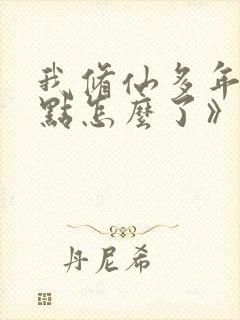 我修仙多年
點怎麼了》
丹尼希